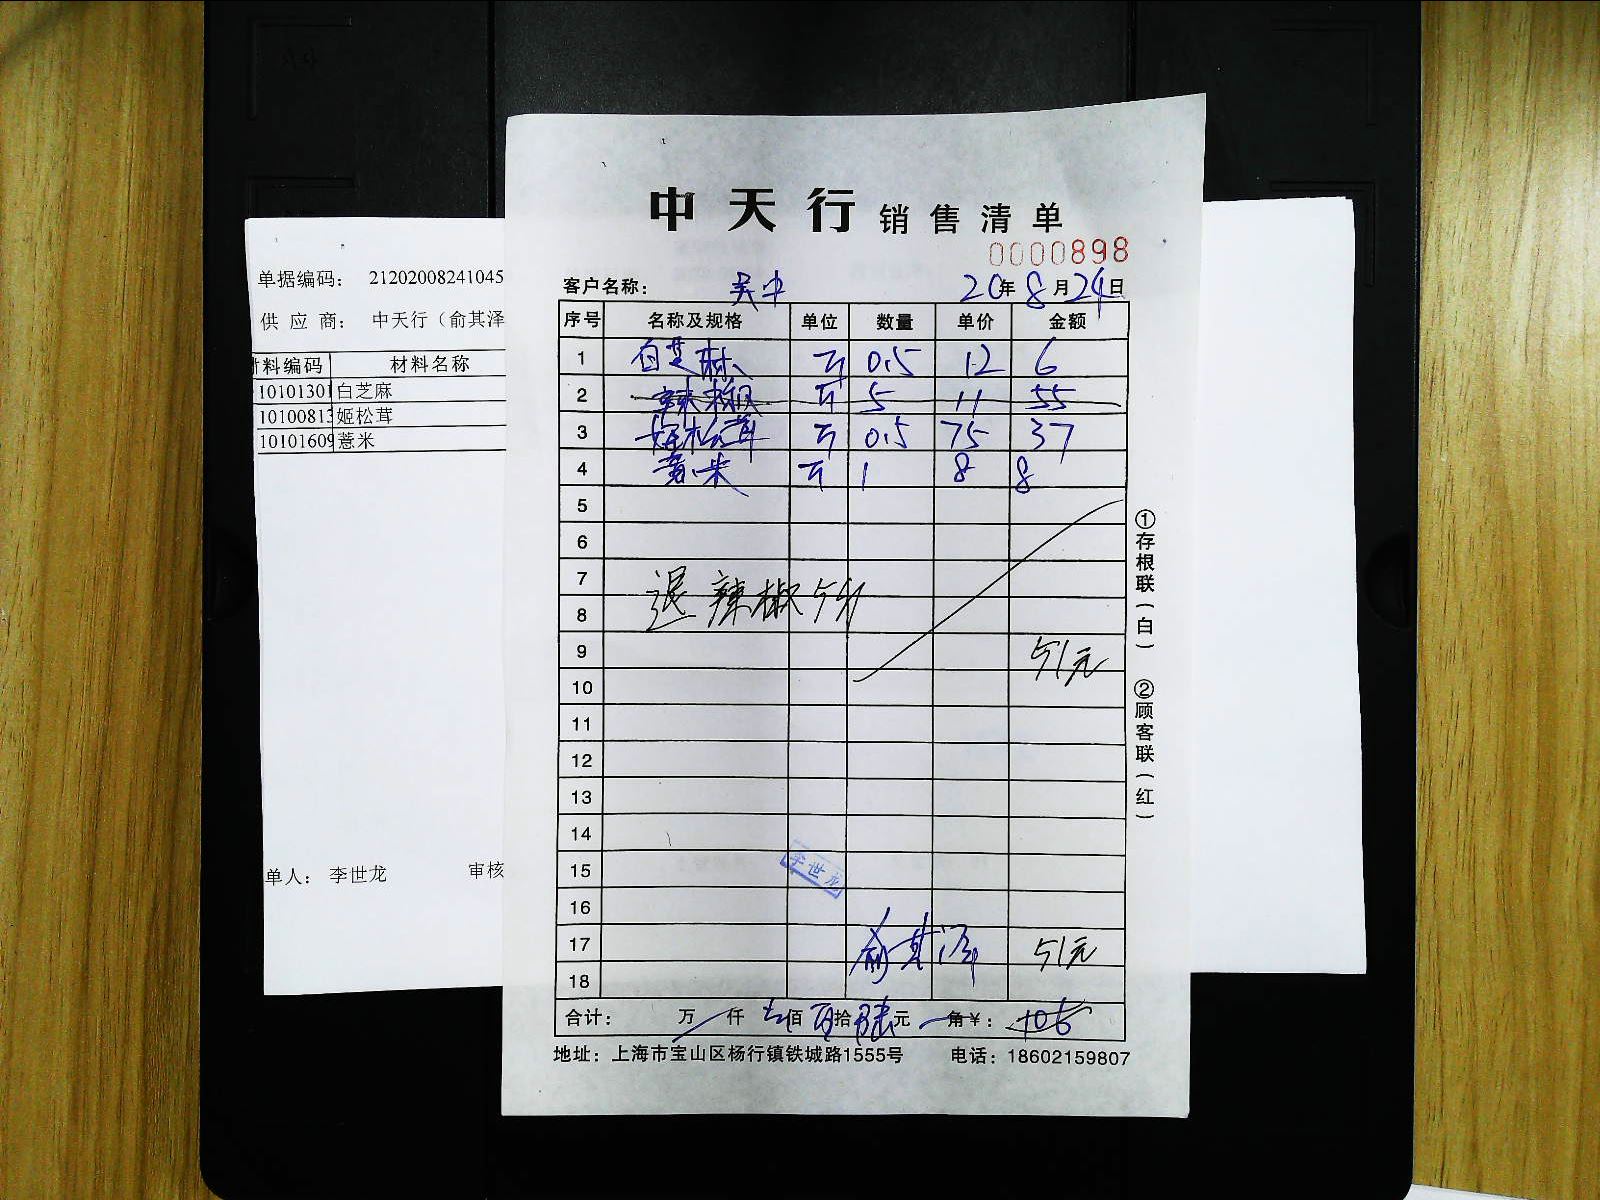 中天行 销售清单
0000898
客户名称： 吴中 20年8月24日
序号 名称及规格 单位 数量 单价 金额
1 白芝麻 斤 0.5 12 6
2 辣椒 斤 5 11 55
3 姬松茸 斤 0.5 75 37
4 薏米 斤 1 8 8
5
6
7
8
退辣椒5斤
9 51元
10
11
12
13
14
15
李世龙
16
17 俞其泽 51元
18
合计： 万 仟 佰 拾 陆元 角 ￥： 106
地址：上海市宝山区杨行镇铁城路1555号 电话：18602159807
①存根联（白） ②顾客联（红）
单据编码： 21202008241045
供应商： 中天行（俞其泽
材料编码 材料名称
10101301 白芝麻
1010081 姬松茸
10101609 薏米
单人： 李世龙 审核